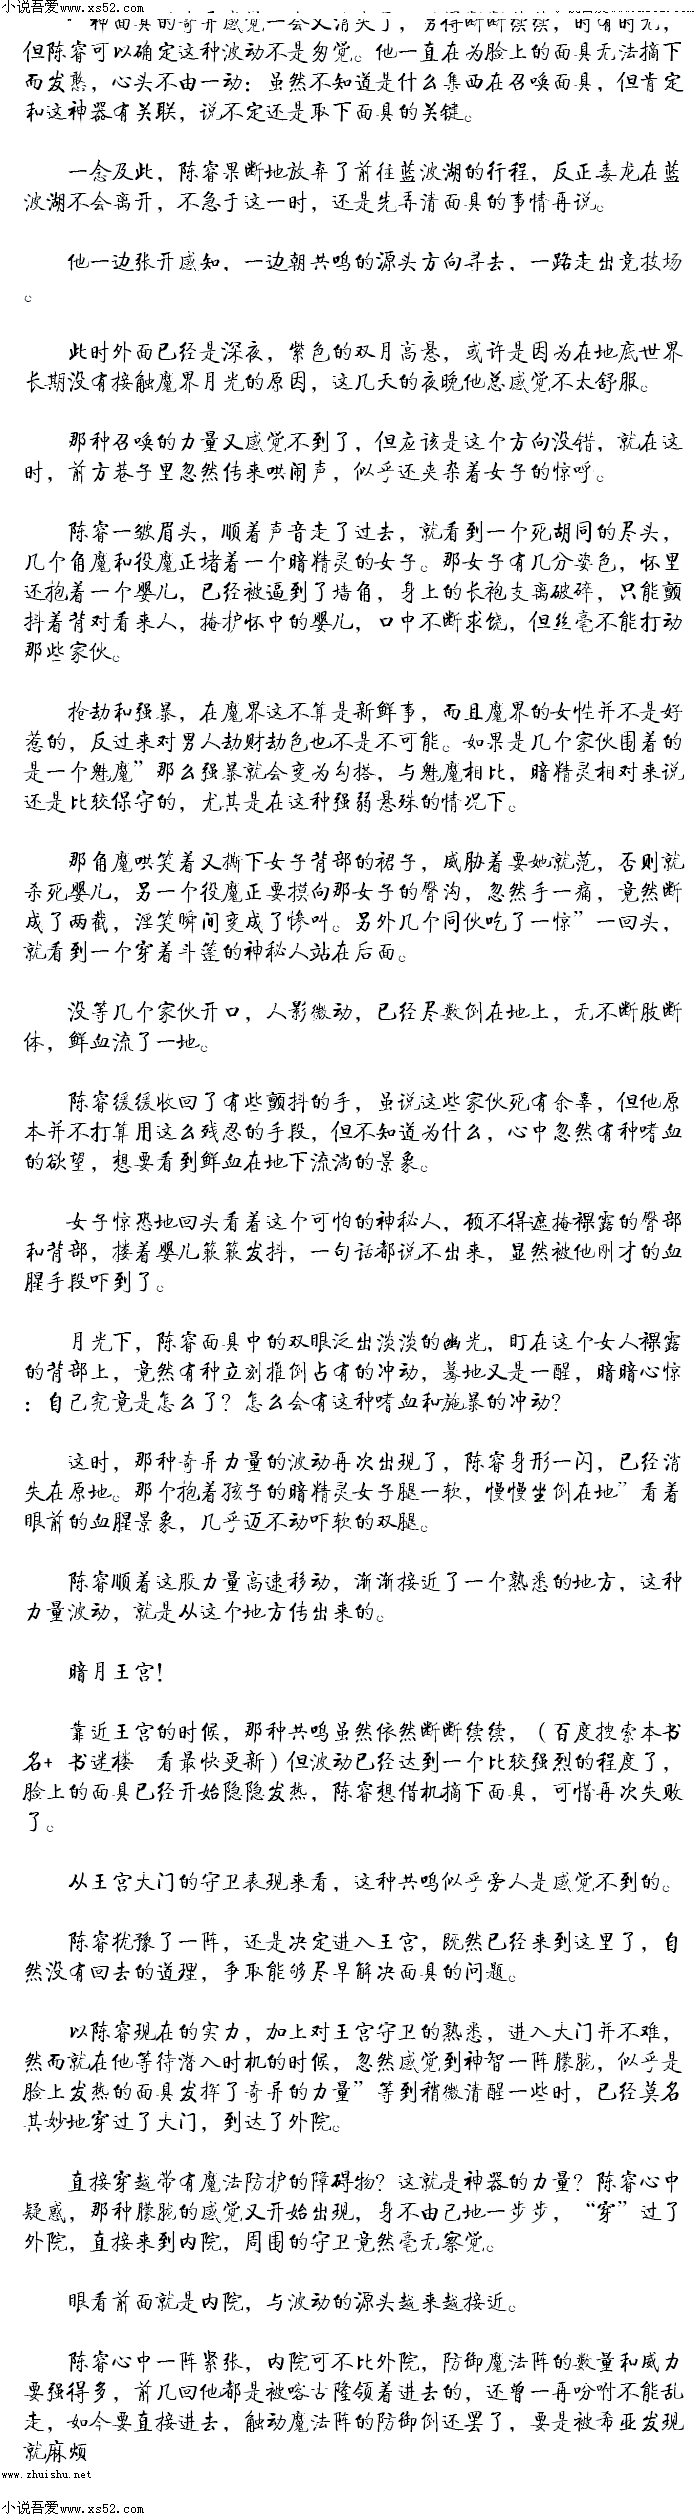 小说吾爱www.xs52.com
小说吾爱www.xs52.com
种面具的奇异感觉一会又消失了，另得断断续续，时有时无，
但陈睿可以确定这种波动不是匆觉。他一直在为脸上的面具无法摘下
而发愁，心头不由一动：虽然不知道是什么集西在召唤面具，但肯定
和这神器有关联，说不定还是取下面具的关键。
一念及此，陈睿果断地放弃了前往蓝波湖的行程，反正毒龙在蓝
波湖不会离开，不急于这一时，还是先弄清面具的事情再说。
他一边张开感知，一边朝共鸣的源头方向寻去，一路走出竞技场
。
此时外面已经是深夜，紫色的双月高悬，或许是因为在地底世界
长期没有接触魔界月光的原因，这几天的夜晚他总感觉不太舒服。
那种召唤的力量又感觉不到了，但应该是这个方向没错，就在这
时，前方巷子里忽然传来哄闹声，似乎还夹杂着女子的惊呼。
陈睿一皱眉头，顺着声音走了过去，就看到一个死胡同的尽头，
几个角魔和役魔正堵着一个暗精灵的女子。那女子有几分姿色，怀里
还抱着一个婴儿，已经被逼到了墙角，身上的长袍支离破碎，只能颤
抖着背对看来人，掩护怀中的婴儿，口中不断求饶，但丝毫不能打动
那些家伙。
抢劫和强暴，在魔界这不算是新鲜事，而且魔界的女性并不是好
惹的，反过来对男人劫财劫色也不是不可能。如果是几个家伙围着的
是一个魅魔”那么强暴就会变为勾搭，与魅魔相比，暗精灵相对来说
还是比较保守的，尤其是在这种强弱悬殊的情况下。
那角魔哄笑着又撕下女子背部的裙子，威胁着要她就范，否则就
杀死婴儿，另一个役魔正要摸向那女子的臀沟，忽然手一痛，竟然断
成了两截，淫笑瞬间变成了惨叫。另外几个同伙吃了一惊”一回头，
就看到一个穿着斗篷的神秘人站在后面。
没等几个家伙开口，人影微动，已经尽数倒在地上，无不断肢断
体，鲜血流了一地。
陈睿缓缓收回了有些颤抖的手，虽说这些家伙死有余辜，但他原
本并不打算用这么残忍的手段，但不知道为什么，心中忽然有种嗜血
的欲望，想要看到鲜血在地下流淌的景象。
女子惊恐地回头看着这个可怕的神秘人，顾不得遮掩裸露的臀部
和背部，搂着婴儿簌簌发抖，一句话都说不出来，显然被他刚才的血
腥手段吓到了。
月光下，陈睿面具中的双眼泛出淡淡的幽光，盯在这个女人裸露
的背部上，竟然有种立刻推倒占有的冲动，蓦地又是一醒，暗暗心惊
：自己究竟是怎么了？怎么会有这种嗜血和施暴的冲动？
这时，那种奇异力量的波动再次出现了，陈睿身形一闪，已经消
失在原地。那个抱着孩子的暗精灵女子腿一软，慢慢坐倒在地”看着
眼前的血腥景象，几乎迈不动吓软的双腿。
陈睿顺着这股力量高速移动，渐渐接近了一个熟悉的地方，这种
力量波动，就是从这个地方传出来的。
暗月王宫！
靠近王宫的时候，那种共鸣虽然依然断断续续，（百度搜索本书
名+ 书迷楼 看最快更新）但波动已经达到一个比较强烈的程度了，
脸上的面具已经开始隐隐发热，陈睿想借机摘下面具，可惜再次失败
了。
从王宫大门的守卫表现来看，这种共鸣似乎旁人是感觉不到的。
陈睿犹豫了一阵，还是决定进入王宫，既然已经来到这里了，自
然没有回去的道理，争取能够尽早解决面具的问题。
以陈睿现在的实力，加上对王宫守卫的熟悉，进入大门并不难，
然而就在他等待潜入时机的时候，忽然感觉到神智一阵朦胧，似乎是
脸上发热的面具发挥了奇异的力量”等到稍微清醒一些时，已经莫名
其妙地穿过了大门，到达了外院。
直接穿越带有魔法防护的障碍物？这就是神器的力量？陈睿心中
疑惑，那种朦胧的感觉又开始出现，身不由己地一步步，“穿”过了
外院，直接来到内院，周围的守卫竟然毫无察觉。
眼看前面就是内院，与波动的源头越来越接近。
陈睿心中一阵紧张，内院可不比外院，防御魔法阵的数量和威力
要强得多，前几回他都是被喀古隆领着进去的，还曾一再吩咐不能乱
走，如今要直接进去，触动魔法阵的防御倒还罢了，要是被希亚发现
就麻烦
www.zhuishu.net
小说吾爱www.xs52.com